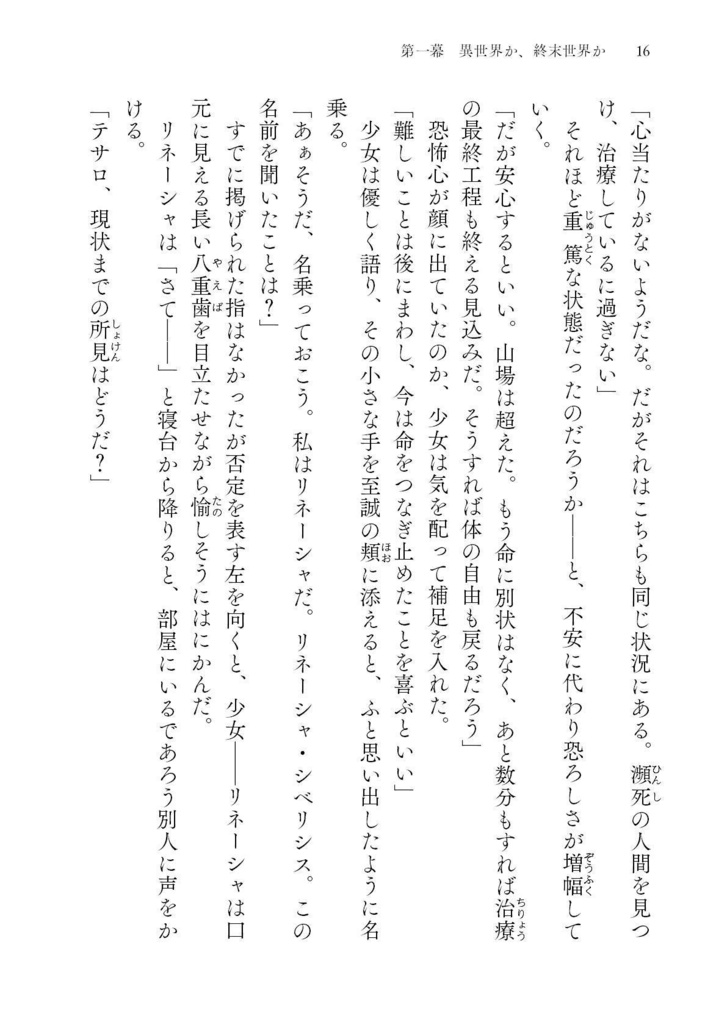 第一幕　異世界か、終末世界か　16
「心当たりがないようだな。だがそれはこちらも同じ状況にある。瀕死の人間を見つ
け、治療しているに過ぎない」
　それほど重篤な状態だったのだろうか――と、不安に代わり恐ろしさが増幅して
いく。
「だが安心するといい。山場は超えた。もう命に別状はなく、あと数分もすれば治療
の最終工程も終える見込みだ。そうすれば体の自由も戻るだろう」
　恐怖心が顔に出ていたのか、少女は気を配って補足を入れた。
「難しいことは後にまわし、今は命をつなぎ止めたことを喜ぶといい」
　少女は優しく語り、その小さな手を至誠の頬に添えると、ふと思い出したように名
乗る。
「あぁそうだ、名乗っておこう。私はリネーシャだ。リネーシャ・シベリシス。この
名前を聞いたことは？」
　すでに掲げられた指はなかったが否定を表す左を向くと、少女――リネーシャは口
元に見える長い八重歯を目立たせながら愉しそうにはにかんだ。
　リネーシャは「さて――」と寝台から降りると、部屋にいるであろう別人に声をか
ける。
「テサロ、現状までの所見はどうだ？」